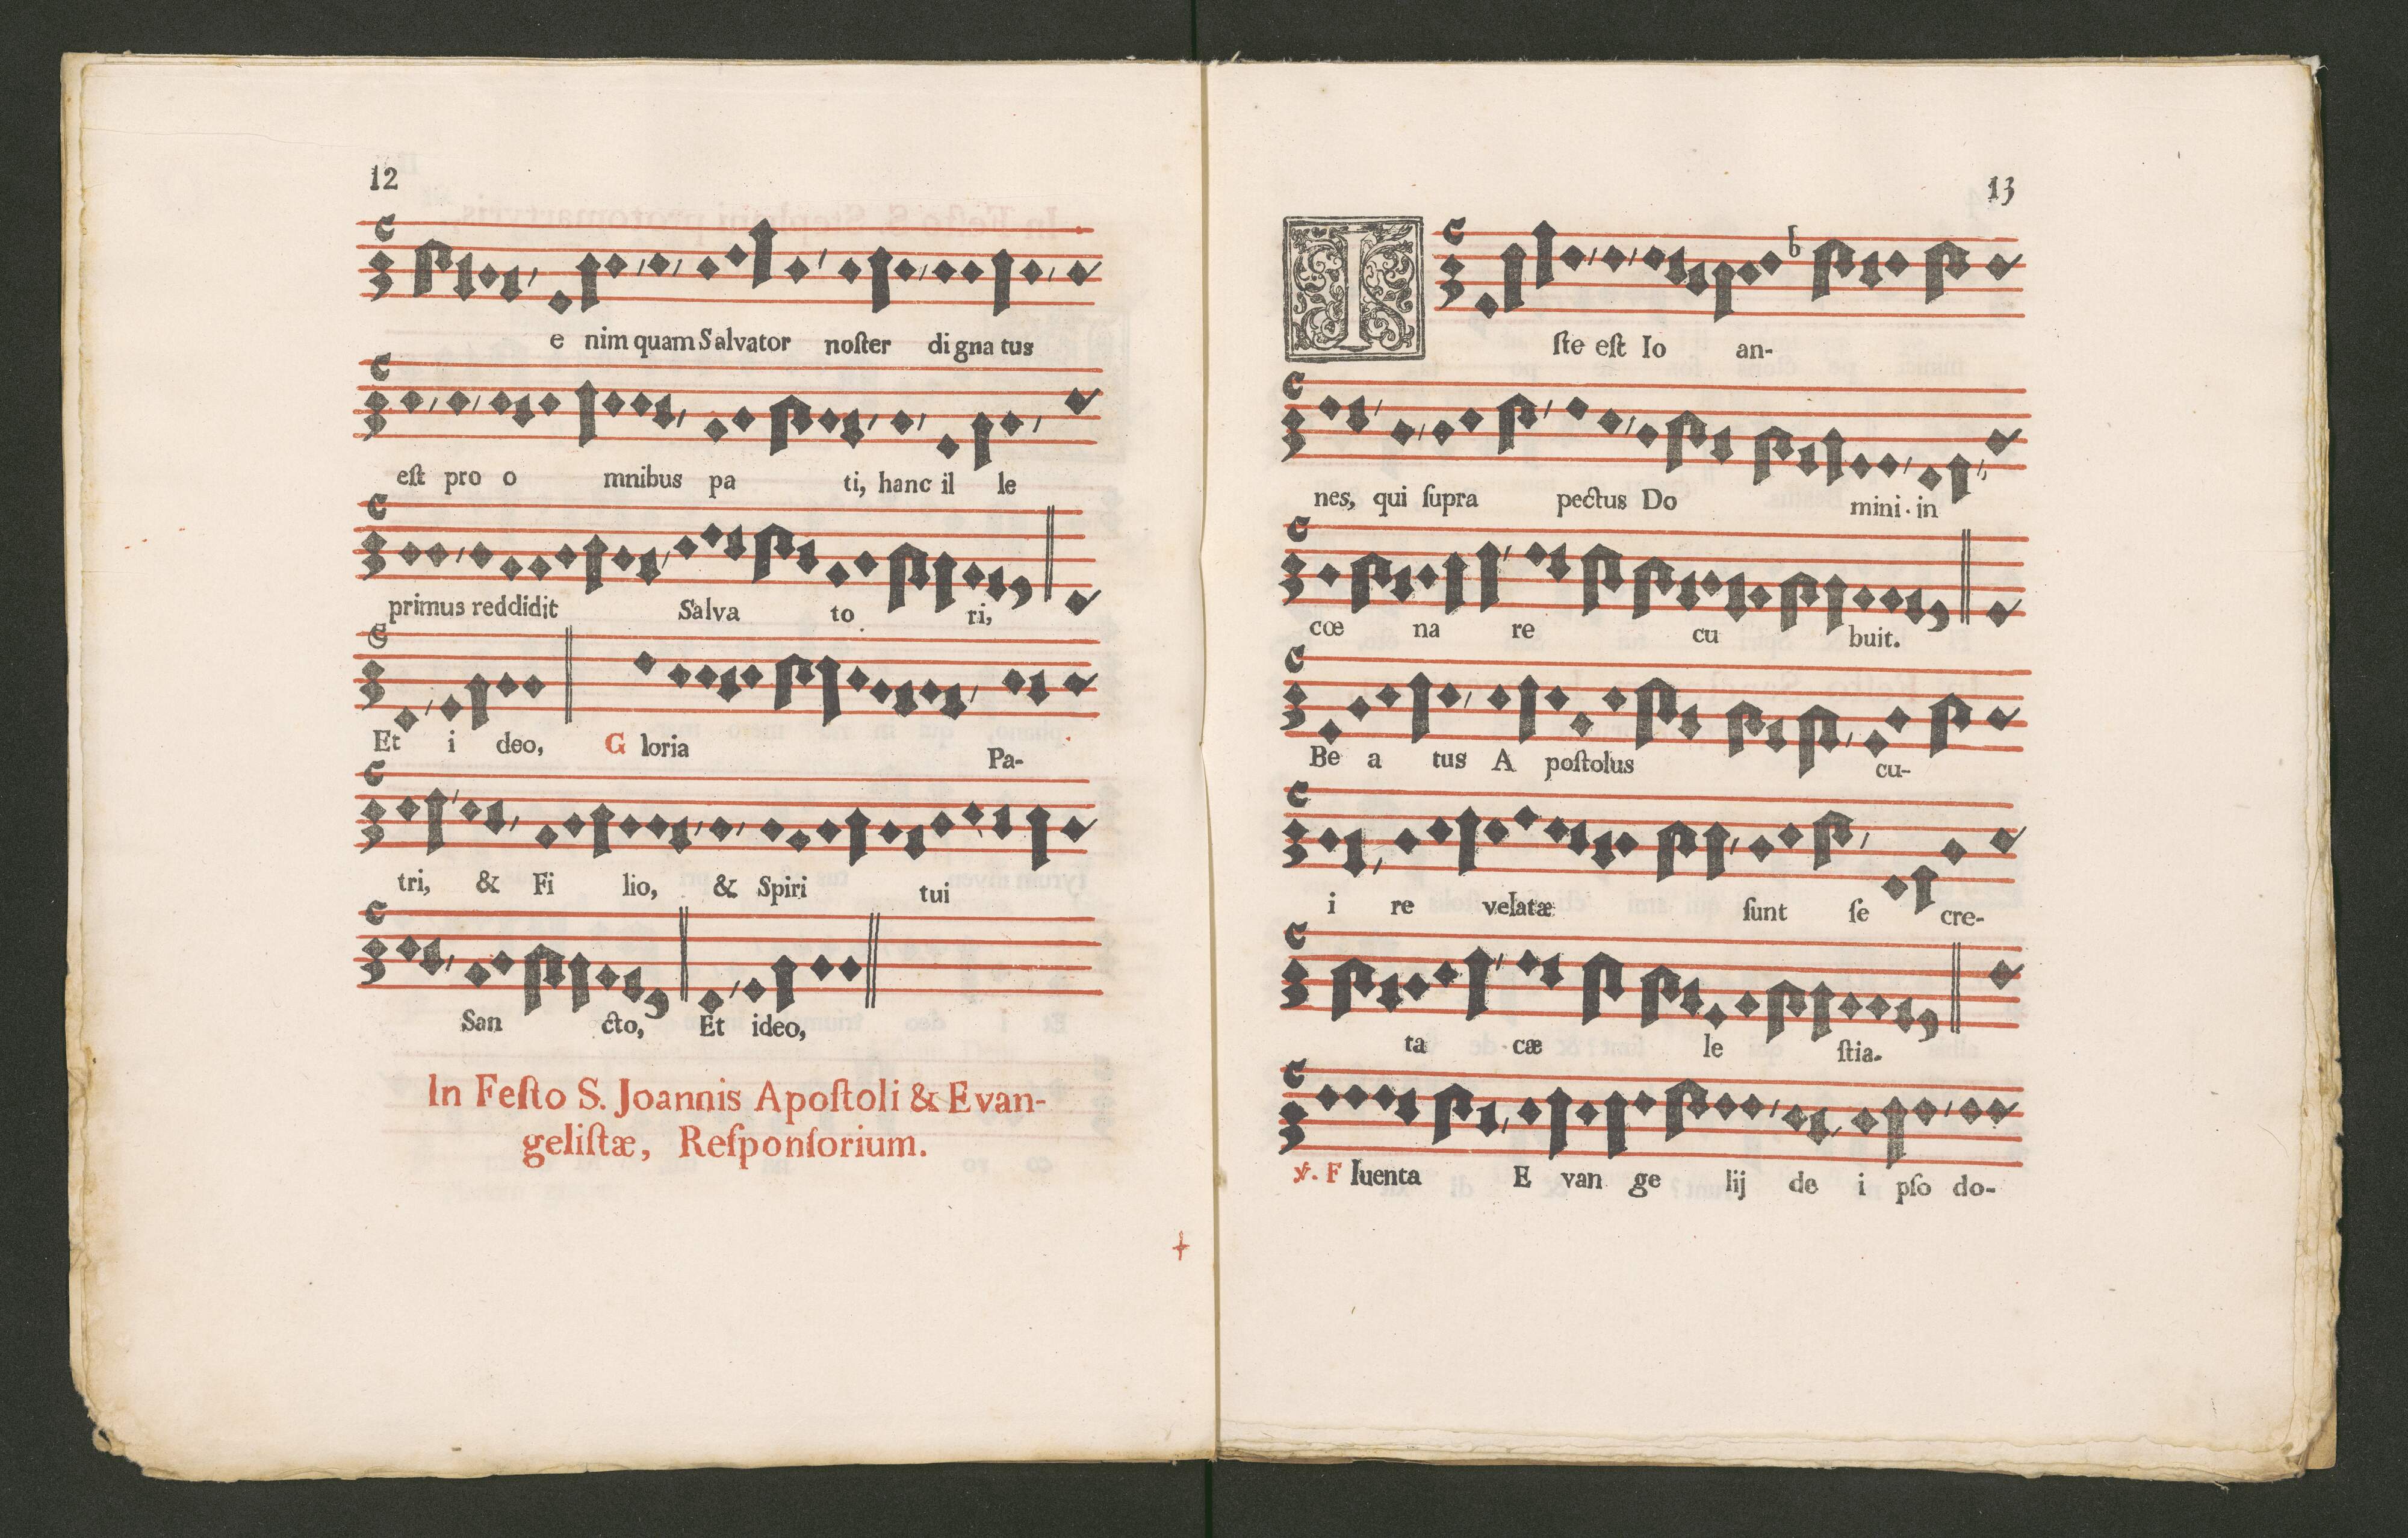 12
e nim quam Salvator noſter di gna tus
eſt pro o mnibus pa ti, hanc il le
primus reddidit Salva to ri,
Et i deo, G loria Pa-
tri, & Fi lio, & Spiri tui
San cto, Et ideo,
In Feſto S. Joannis Apoſtoli & Evan-
geliſtæ, Reſponſorium.
13
I ſte eſt Io an-
nes, qui ſupra pectus Do mini in
cœ na re cu buit.
Be a tus A poſtolus cu-
i re velatæ ſunt ſe cre-
ta cæ le ſtia.
℣. F luenta E van ge lij de i pſo do-